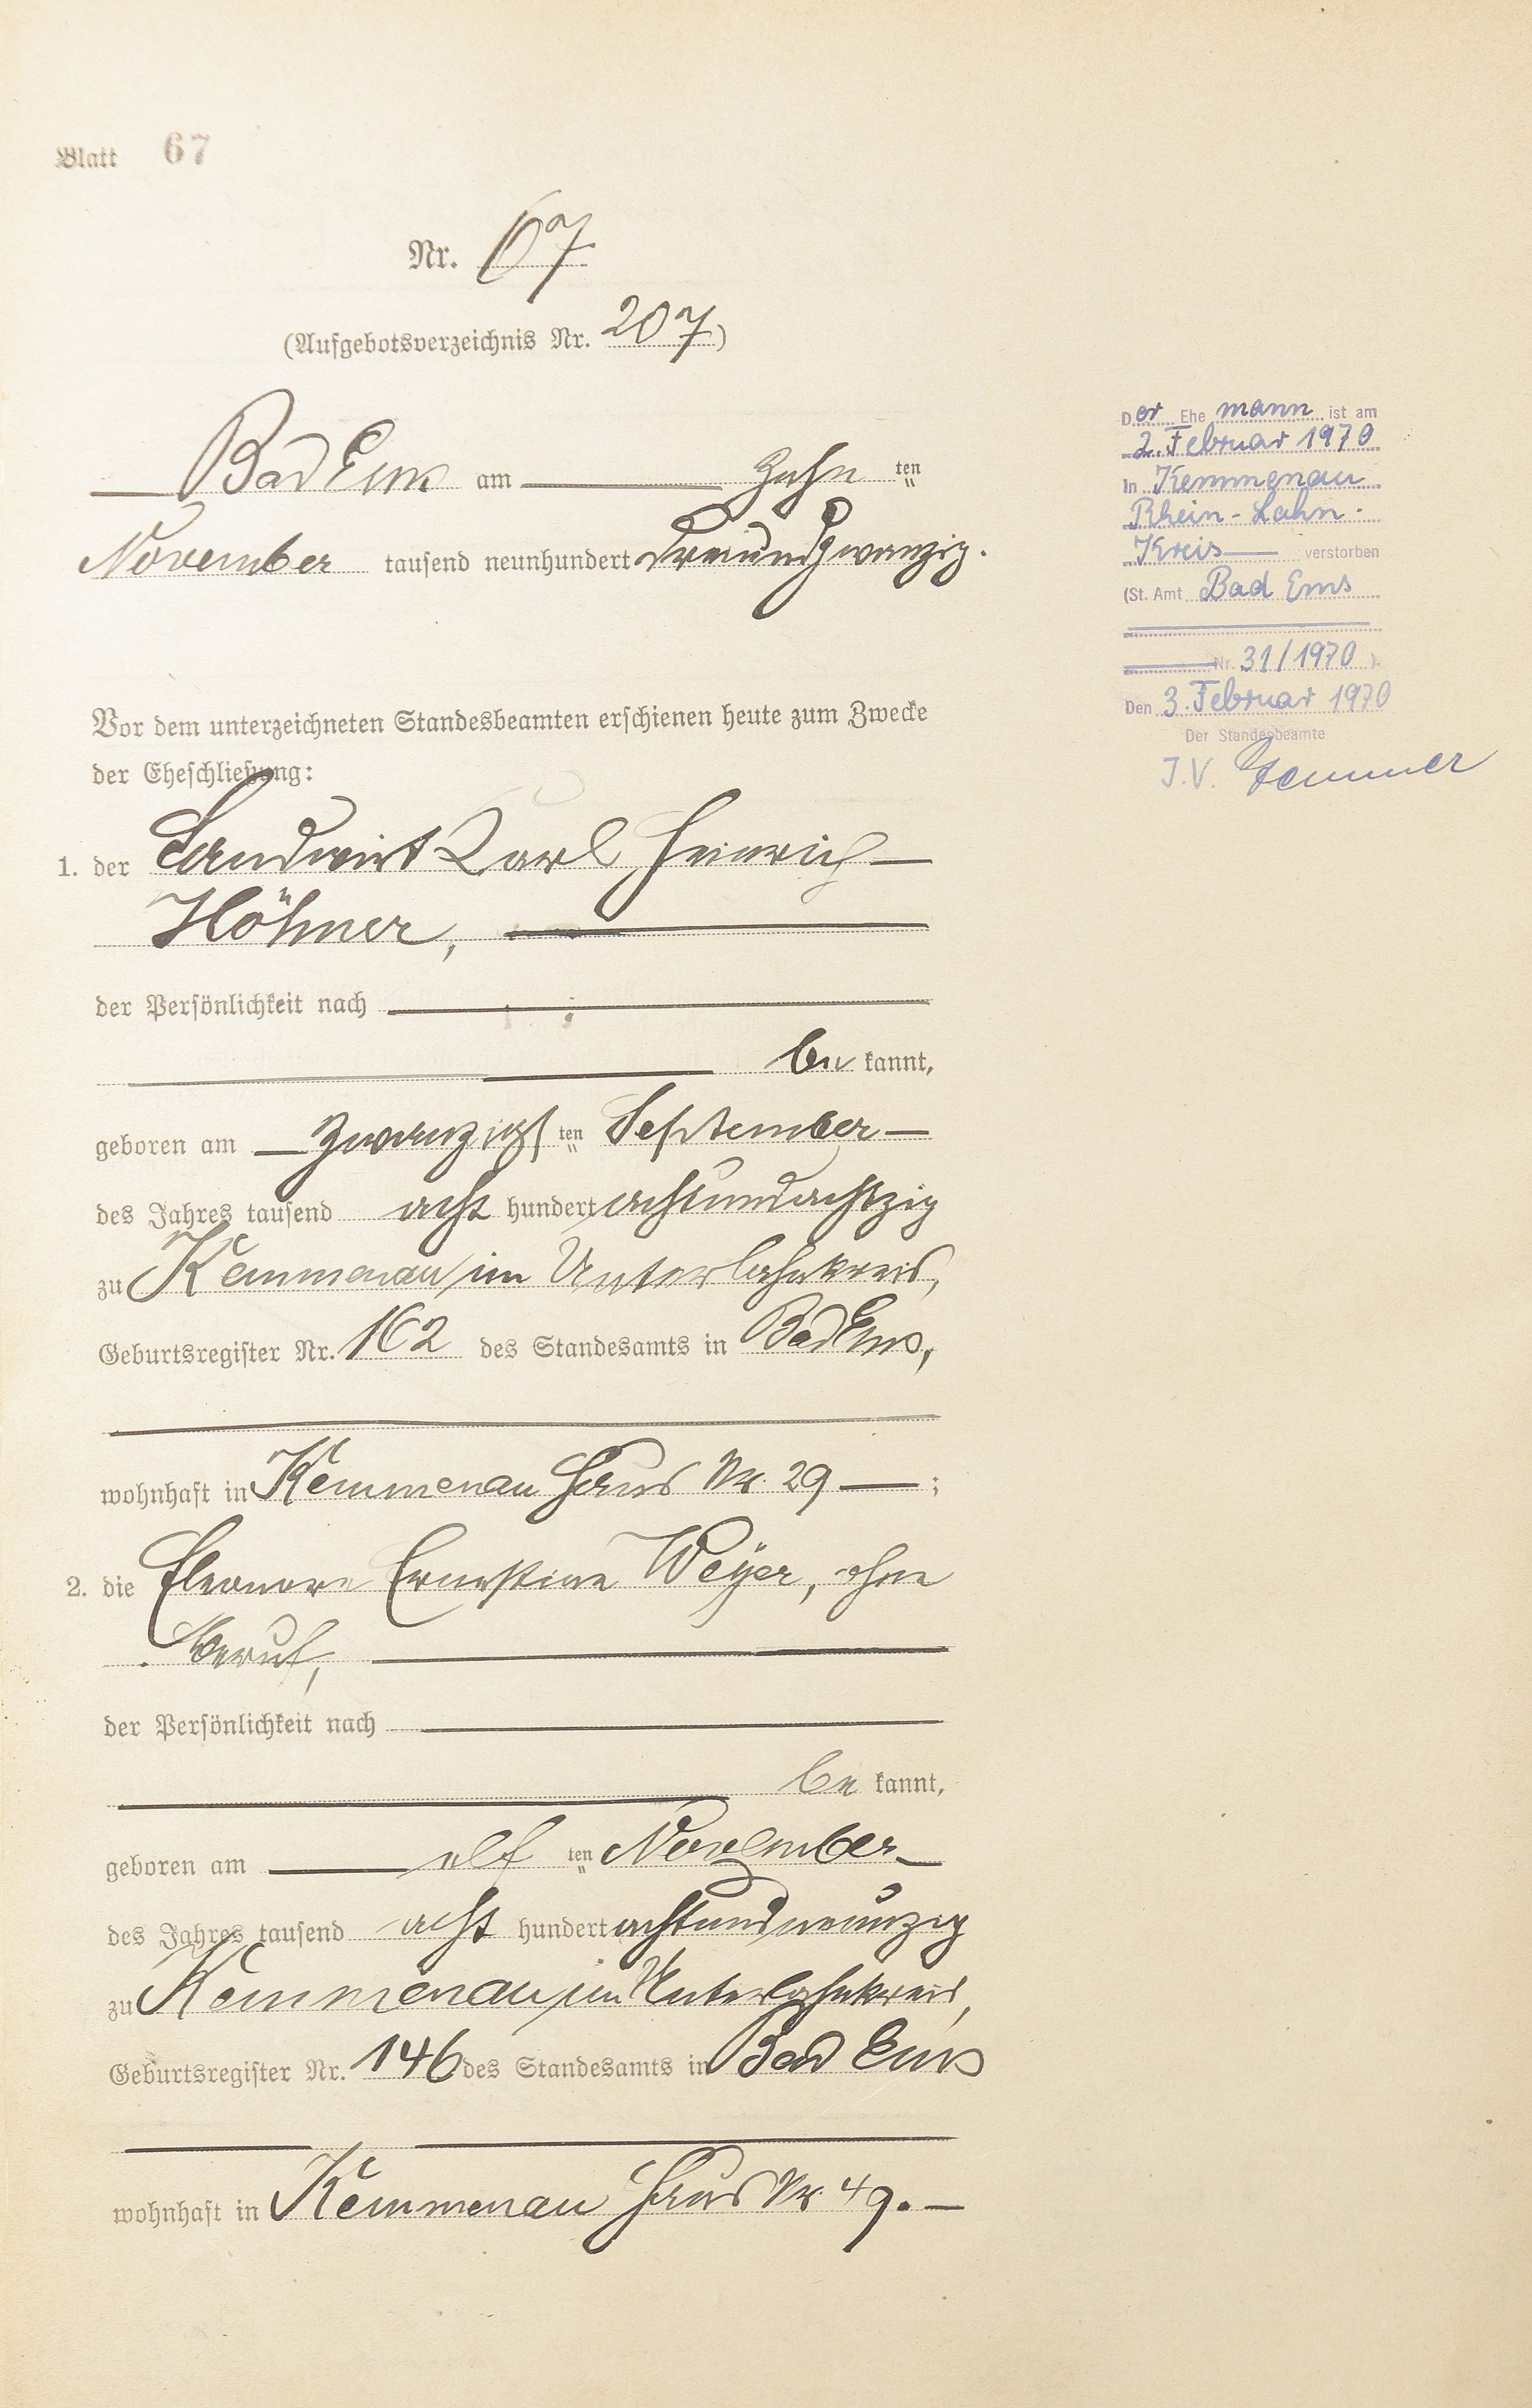 Blatt 67
Nr. 67
(Aufgebotsverzeichnis Nr. 207)
Bad Ems am zehn ten
November tausend neunhundert dreiundzwanzig.
Vor dem unterzeichneten Standesbeamten erschienen heute zum Zwecke
der Eheschließung:
1. der Landwirt Karl Heinrich
Höhner,
der Persönlichkeit nach
be kannt,
geboren am zwanzigsten September
des Jahres tausend acht hundert achtundachtzig
zu Kemmenau im Unterlahnkreis,
Geburtsregister Nr. 162 des Standesamts in Bad Ems,
wohnhaft in Kemmenau Haus Nr. 29 ;
2. die Eleonore Ernestine Weyer, ohne
Beruf,
der Persönlichkeit nach
be kannt,
geboren am elf ten November
des Jahres tausend acht hundert achtundneunzig
zu Kemmenau im Unterlahnkreis,
Geburtsregister Nr. 146 des Standesamts in Bad Ems
wohnhaft in Kemmenau Haus Nr. 49.
Der Ehe mann ist am
2. Februar 1970
in Kemmenau
Rhein-Lahn-
Kreis verstorben
(St. Amt Bad Ems
Nr. 31/1970 ).
Den 3. Februar 1970
Der Standesbeamte
I.V.